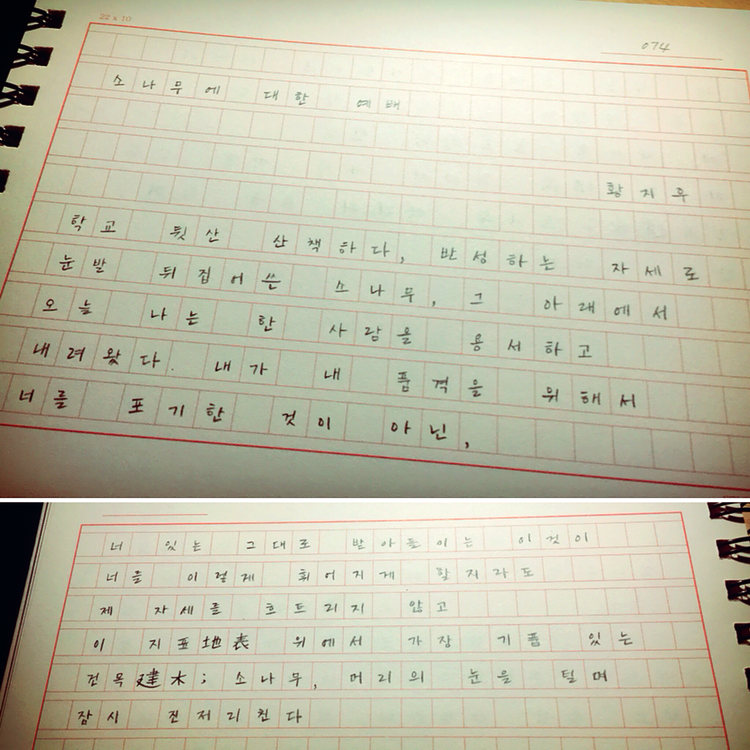 22 x 10
074
소나무에 대한 예배
황지우
학교 뒷산 산책하다, 반성하는 자세로
눈발 뒤집어쓴 소나무, 그 아래에서
오늘 나는 한 사람을 용서하고
내려왔다. 내가 내 품격을 위해서
너를 포기한 것이 아닌,
너 있는 그대로 받아들이는 이것이
너를 이렇게 휘어지게 할지라도
제 자세를 흐트리지 않고
이 지표地表 위에서 가장 기품 있는
건목建木; 소나무, 머리의 눈을 털며
잠시 진저리친다